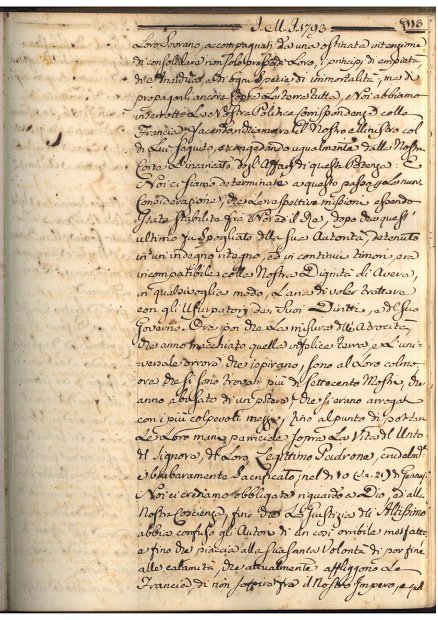 J. M. J. 1793 113
Loro Sovrano, accompagnati da una ostinata intenzione
di consolidare non solo presso di Loro, i principj di empietà
di e d'ogni Specie di immoralità, ma di
propagarli ancora sopra La terra tutta, Noi abbiamo
interrotto La Nostra Politica Corrispondenza colla
Francia, facendo il Nostro Ministro col
di Lui Seguito, e congedando ugualmente dalla Nostra
Corte l'Incaricato degl'Affari di questa Potenza. E
Noi ci siamo determinati a questo passo
Considerazione, che Le rispettive missioni essendo
State stabilite fra Noi ed il Re, dopo che quest'
ultimo fu Spogliato della Sua Autorità, detenuto
in un indegno ritegno, ed in continui timori, era
incompatibile colla Nostra Dignità di Avere,
in qualsivoglia modo, L'aria di voler trattare
con gli Usurpatori dei Suoi Diritti, e del Suo
Governo. Ora poi che La misura dell'Atrocità
che anno macchiato quella infelice terra, e L'uni-
versale orrore che ispirano, sono al Loro colmo,
ora che si sono trovati più di Settecento Mostri, che
anno abusato di un potere che si erano arrogati
con i più colpevoli mezzi, fino al punto di portare
Le Loro mani parricide sopra La Vita dell'Unto
del Signore, del Loro Legittimo Padrone, crudelmente
e barbaramente Sacrificato, nel dì 10 (v.s. 21) di Gennaj.
Noi ci crediamo obbligati riguardo a Dio, ed alla
Nostra Coscienza, fino che La giustizia dell'Altissimo
abbia confuso gli Autori di un così orribile misfatto,
e fino che piaccia alla Sua Santa Volontà di por fine
alle calamità, che attualmente affliggono La
Francia, di non soffrire fra il Nostro Impero, e